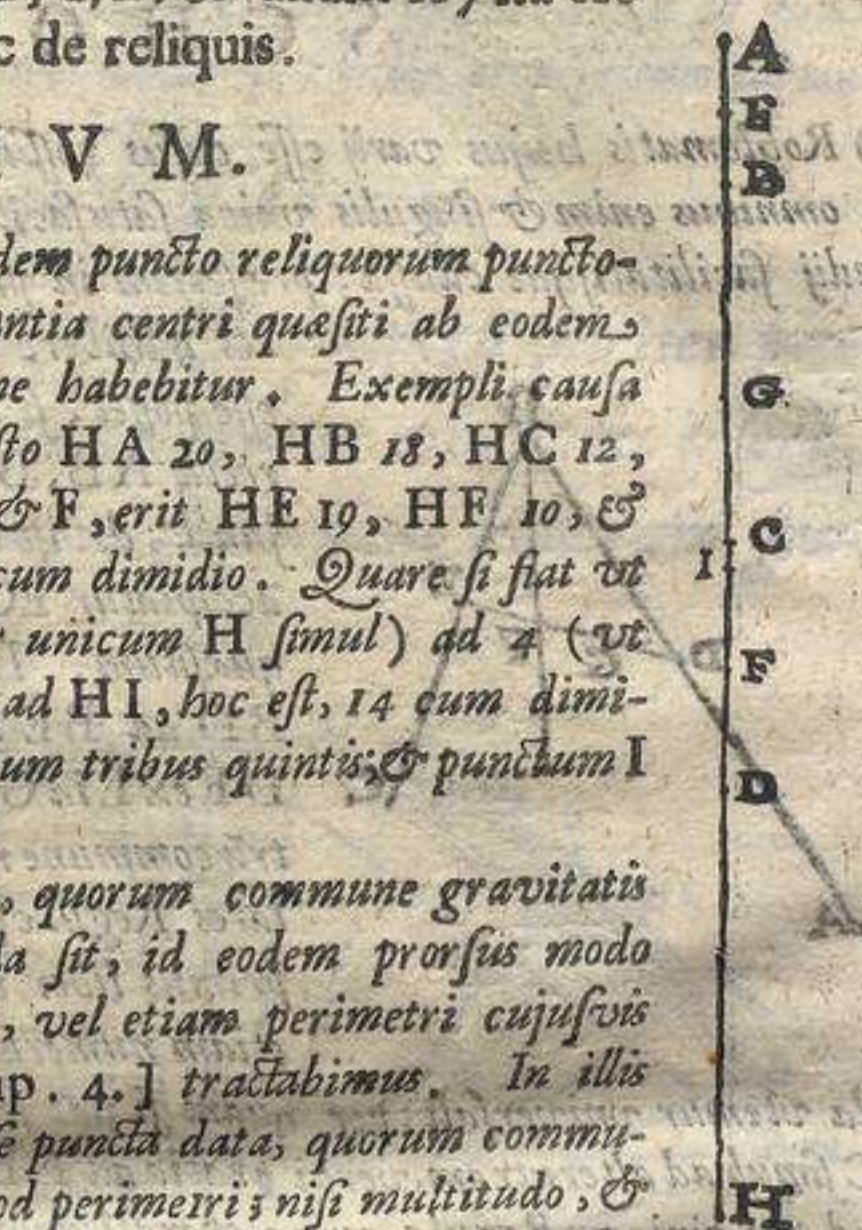 c de reliquis.
V M.
dem puncto reliquorum puncto-
ntia centri quæſiti ab eodem
ne habebitur. Exempli cauſa
ſto HA 20, HB 18, HC 12,
& F, erit HE 19, HF 10, &
cum dimidio. Quare ſi fiat vt
unicum H ſimul) ad 4 (vt
ad HI, hoc eſt, 14 cum dimi-
um tribus quintis; & punctum I
, quorum commune gravitatis
da ſit, id eodem prorſus modo
, vel etiam perimetri cujuſvis
ap. 4.] tractabimus. In illis
ſe puncta data, quorum commu-
od perimetri; niſi multitudo, &
A
E
B
G
C
I
F
D
H